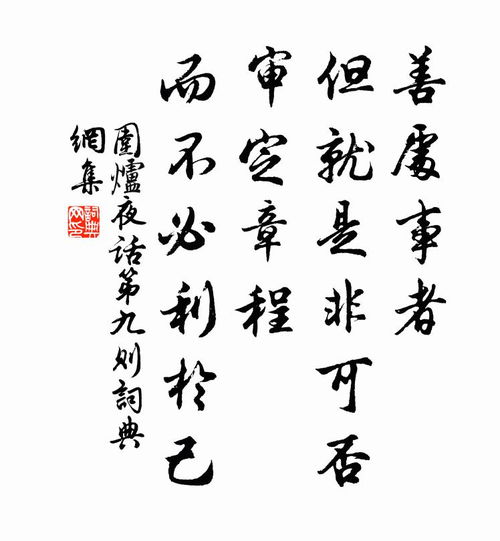 善處事者
但就是非可否
审定章程
而不必利於己
圍爐夜话第九则詞典
網集
詞典
网印